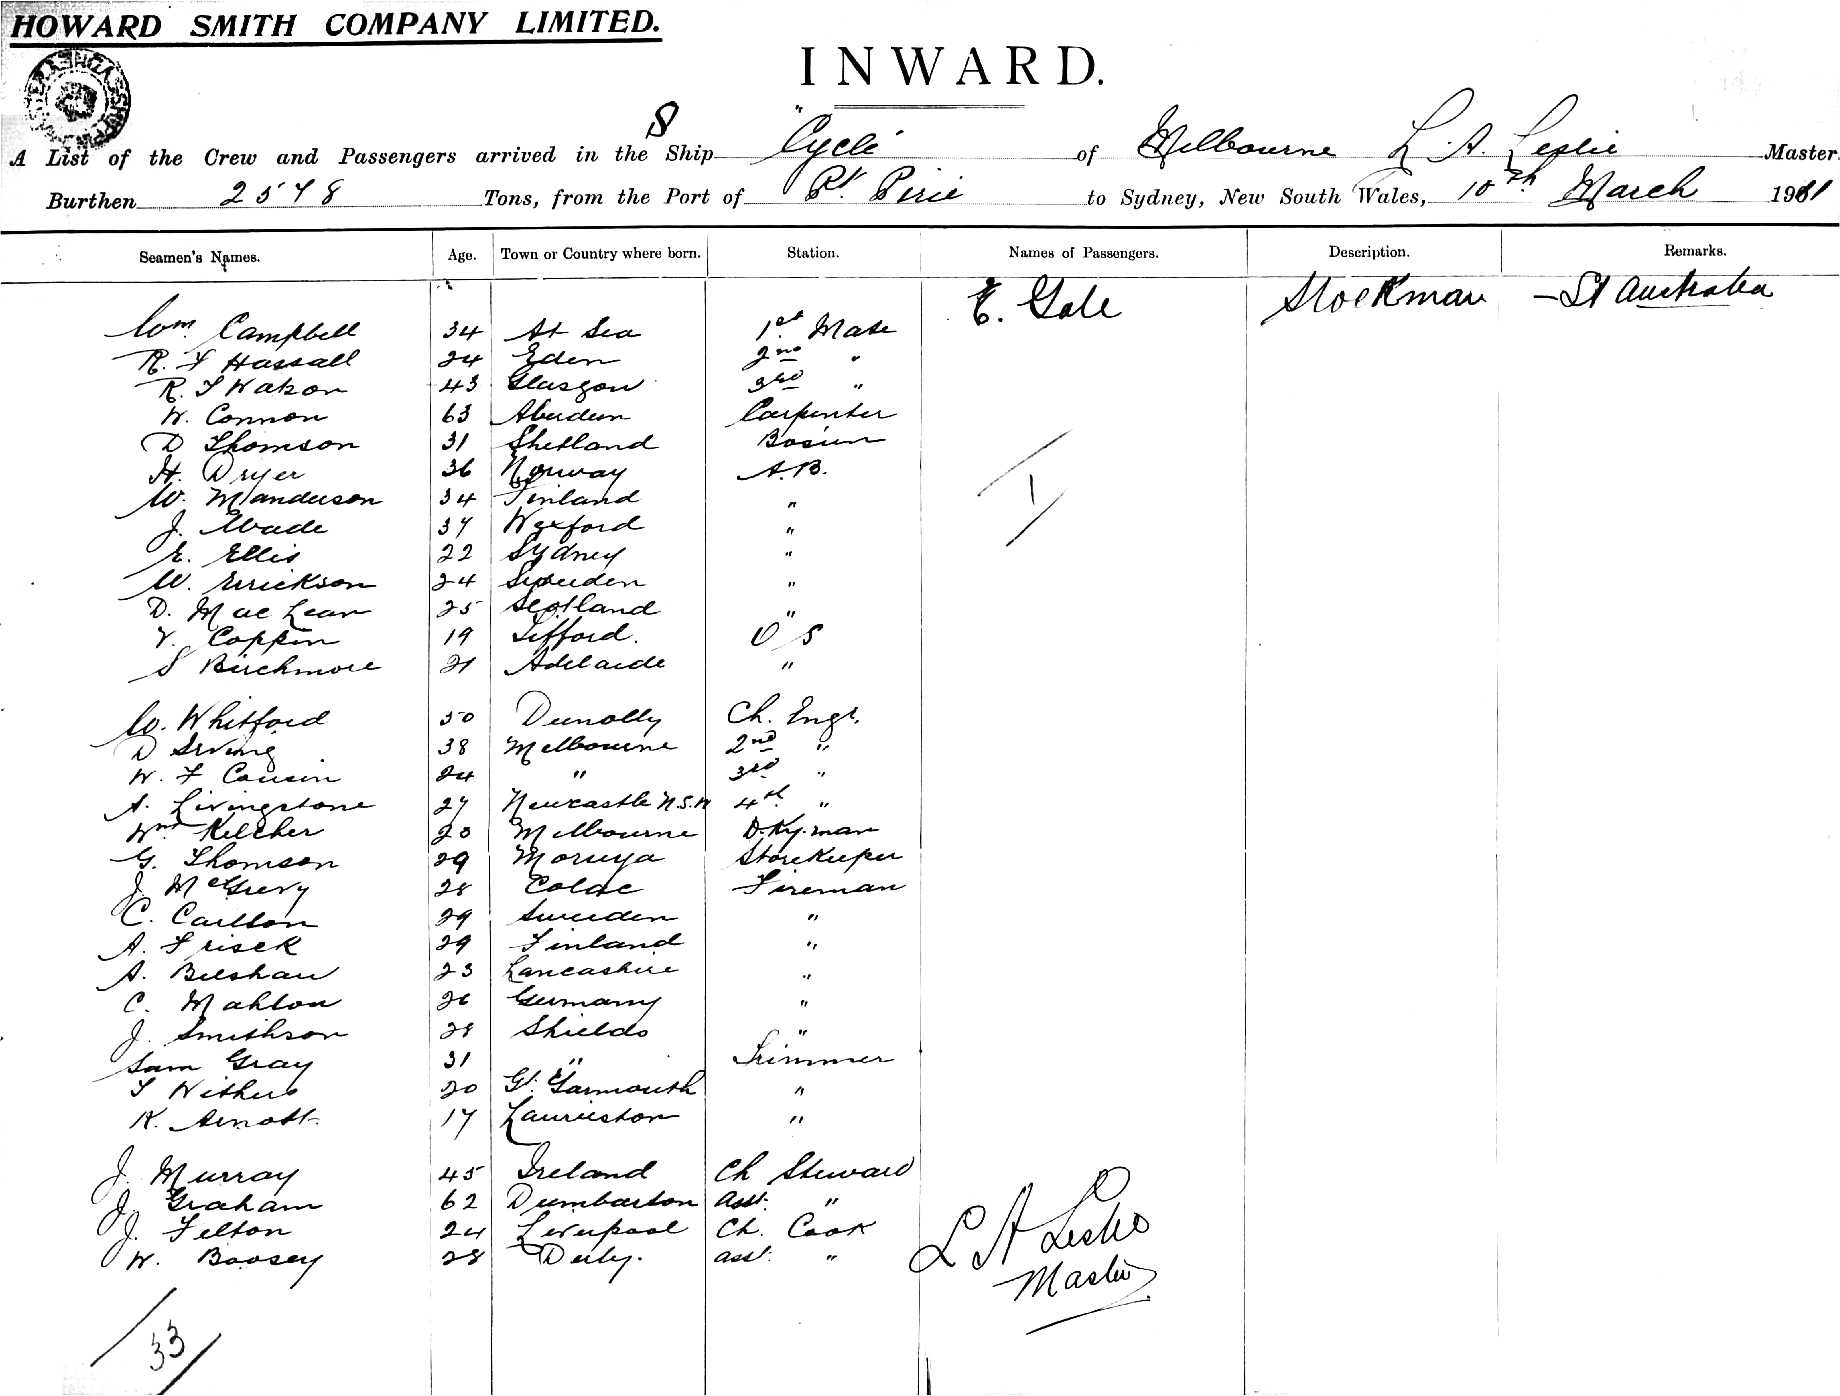 HOWARD SMITH COMPANY LIMITED.
INWARD.
A List of the Crew and Passengers arrived in the S Ship "Cycle" of Melbourne L. A. Leslie Master
Burthen 2578 Tons, from the Port of Pt. Pirie to Sydney, New South Wales, 10th March 1911
Seamen's Names. Age. Town or Country where born. Station. Names of Passengers. Description. Remarks.
E. Gale Stockman - St Australia
Wm. Campbell 34 At Sea 1st Mate
R. F Hassall 24 Eden 2nd "
R. T Watson 43 Glasgow 3rd "
W. Connon 63 Aberdeen Carpenter
D Thomson 31 Shetland Bosun
H. Dryer 36 Norway A.B.
W. Manderson 34 Finland "
J. Wade 37 Wexford "
E. Ellis 22 Sydney "
W. Errickson 24 Sweden "
D. Mac Lean 25 Scotland "
V. Coppin 19 O S
S Birchmore 21 Adelaide "
W. Whitford 50 Dunolly Ch. Engr.
D Irving 38 Melbourne 2nd "
W. F Cousin 24 " 3rd "
A. Livingstone 27 Newcastle N.S.W 4th "
Wm Kelcher 20 Melbourne D.Ky.man
G. Thomson 29 Moruya Storekeeper
J. McGrevy 28 Colac Fireman
C. Carlton 29 Sweden "
A. Frisek 29 Finland "
A. Beeshaw 23 Lancashire "
C. Mahlou 26 Germany "
J. Smithson 28 Shields "
Sam Gray 31 " Trimmer
T Withers 20 Gt. Yarmouth "
K. Arnott. 17 Laurieston "
J. Murray 45 Ireland Ch Steward
J. Graham 62 Dumbarton asst. "
J. Felton 24 Liverpool Ch. Cook
W. Boosey 28 Derby. asst. "
1
L A Leslie
Master
33